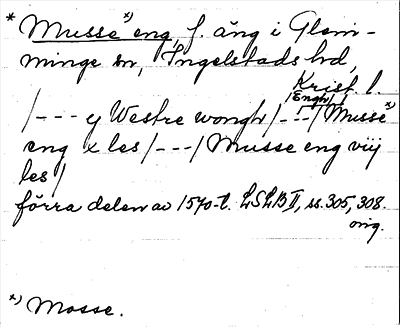 * Musse *) eng, f. äng i Glem-
minge sn, Ingelstads hd,
Krist. l.
/Engh/
/--- y Westre wongh /---/ Musse *)
eng x les /---/ Musse eng viij
les/
förra delen av 1570-t. LSLB II, ss. 305, 308.
orig.
*) Mosse.